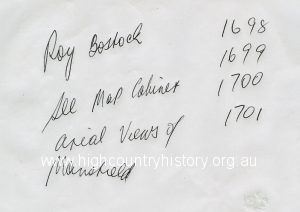 Roy Bostock 1698
1699
See Map Cabinet 1700
arial Views of 1701
www.highcountryhistory.org.au
Mansfield